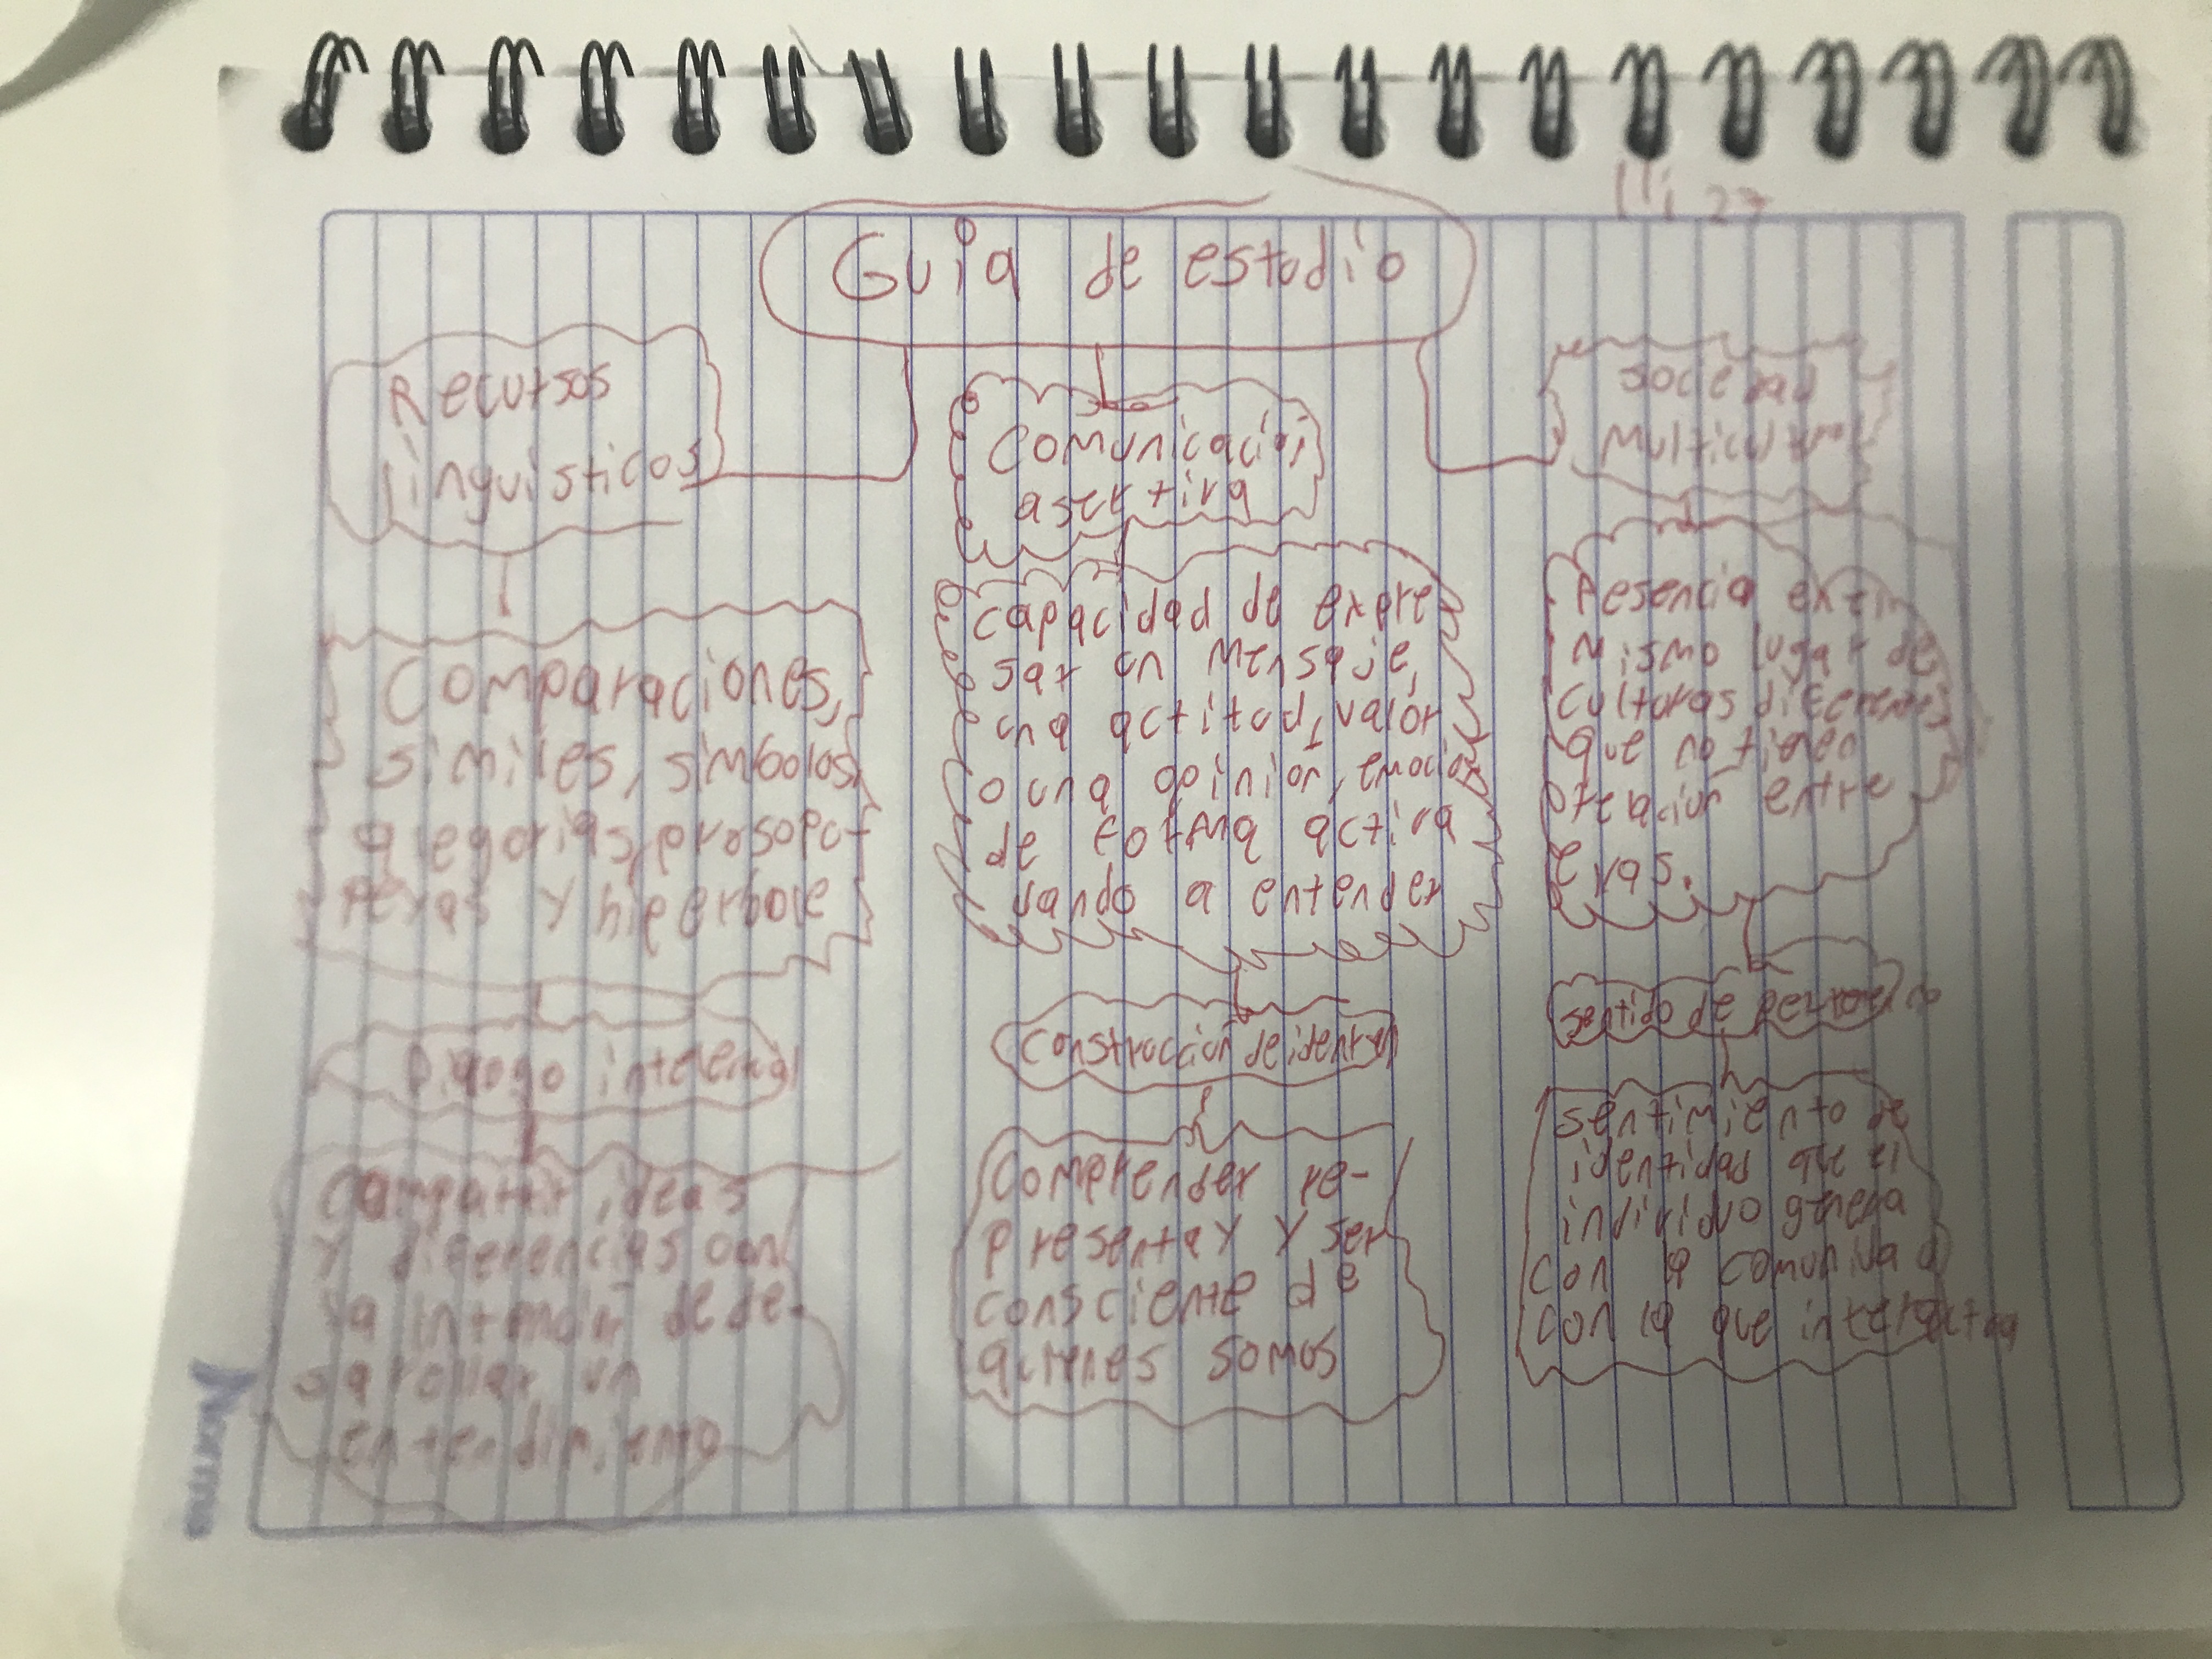 Guia de estudio
Recursos
linguisticos
Comparaciones,
similes, simbolos,
alegorias, prosopo-
peyas y hiperbole
Compartir ideas
y diferencias con
la intencion de de-
sarollar un
entendimiento
Comunicacion
asertiva
capacidad de expre
sar un mensaje,
una actitud, valor
o una opinion, emocion
de forma activa
yando a entender
Construccion de
Comprender re-
presentay y ser
consciente de
quienes somos
sociedad
Multicultural
Presencia en el
mismo lugar de
culturas diferentes
que no tienen
relacion entre
eyas.
sentido de
sentimiento de
identidad que el
individuo genera
con la comunidad
con la que interactua
Norma